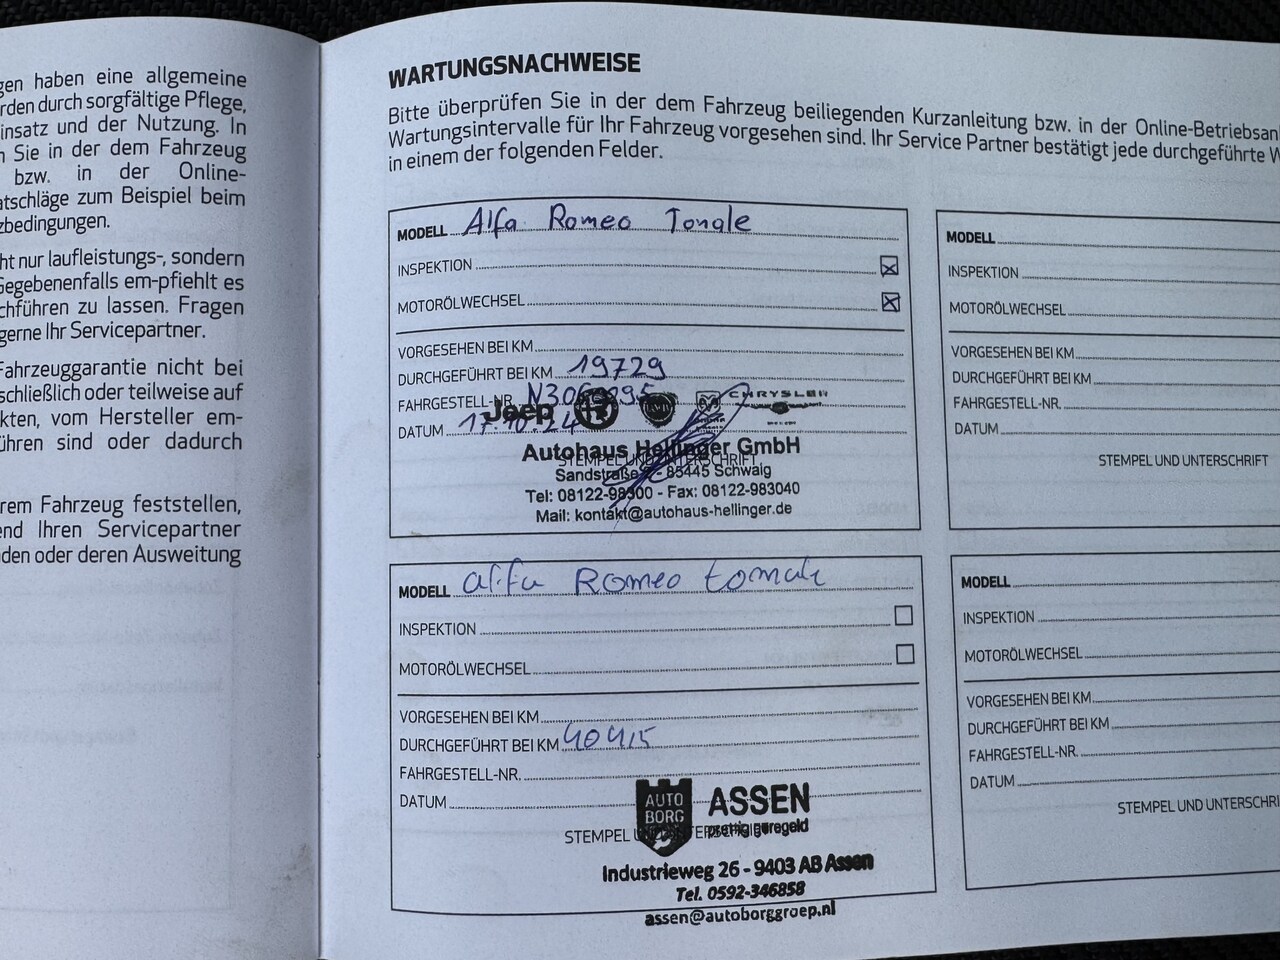 gen haben eine allgemeine
rden durch sorgfältige Pflege,
insatz und der Nutzung. In
n Sie in der dem Fahrzeug
bzw. in der Online-
atschläge zum Beispiel beim
zbedingungen.
ht nur laufleistungs-, sondern
Gegebenenfalls em-pfiehlt es
chführen zu lassen. Fragen
gerne Ihr Servicepartner.
Fahrzeuggarantie nicht bei
schließlich oder teilweise auf
kten, vom Hersteller em-
ühren sind oder dadurch
rem Fahrzeug feststellen,
end Ihren Servicepartner
den oder deren Ausweitung
WARTUNGSNACHWEISE
Bitte überprüfen Sie in der dem Fahrzeug beiliegenden Kurzanleitung bzw. in der Online-Betriebsan
Wartungsintervalle für Ihr Fahrzeug vorgesehen sind. Ihr Service Partner bestätigt jede durchgeführte W
in einem der folgenden Felder.
MODELL Alfa Romeo Tonale
INSPEKTION
MOTORÖLWECHSEL
VORGESEHEN BEI KM
DURCHGEFÜHRT BEI KM 19729
FAHRGESTELL-NR.
Jeep CHRYSLER
DATUM 17.10.24
Autohaus Hellinger GmbH
STEMPEL UND UNTERSCHRIFT
Sandstraße - 85445 Schwaig
Tel: 08122-98300 - Fax: 08122-983040
Mail: kontakt@autohaus-hellinger.de
MODELL
INSPEKTION
MOTORÖLWECHSEL
VORGESEHEN BEI KM
DURCHGEFÜHRT BEI KM
FAHRGESTELL-NR.
DATUM
STEMPEL UND UNTERSCHRIFT
MODELL alfa Romeo tomale
INSPEKTION
MOTORÖLWECHSEL
VORGESEHEN BEI KM
DURCHGEFÜHRT BEI KM 40415
FAHRGESTELL-NR.
DATUM
AUTO BORG ASSEN
prettig geregeld
STEMPEL UND UNTERSCHRIFT
Industrieweg 26 - 9403 AB Assen
Tel. 0592-346858
assen@autoborggroep.nl
MODELL
INSPEKTION
MOTORÖLWECHSEL
VORGESEHEN BEI KM
DURCHGEFÜHRT BEI KM
FAHRGESTELL-NR.
DATUM
STEMPEL UND UNTERSCHRI